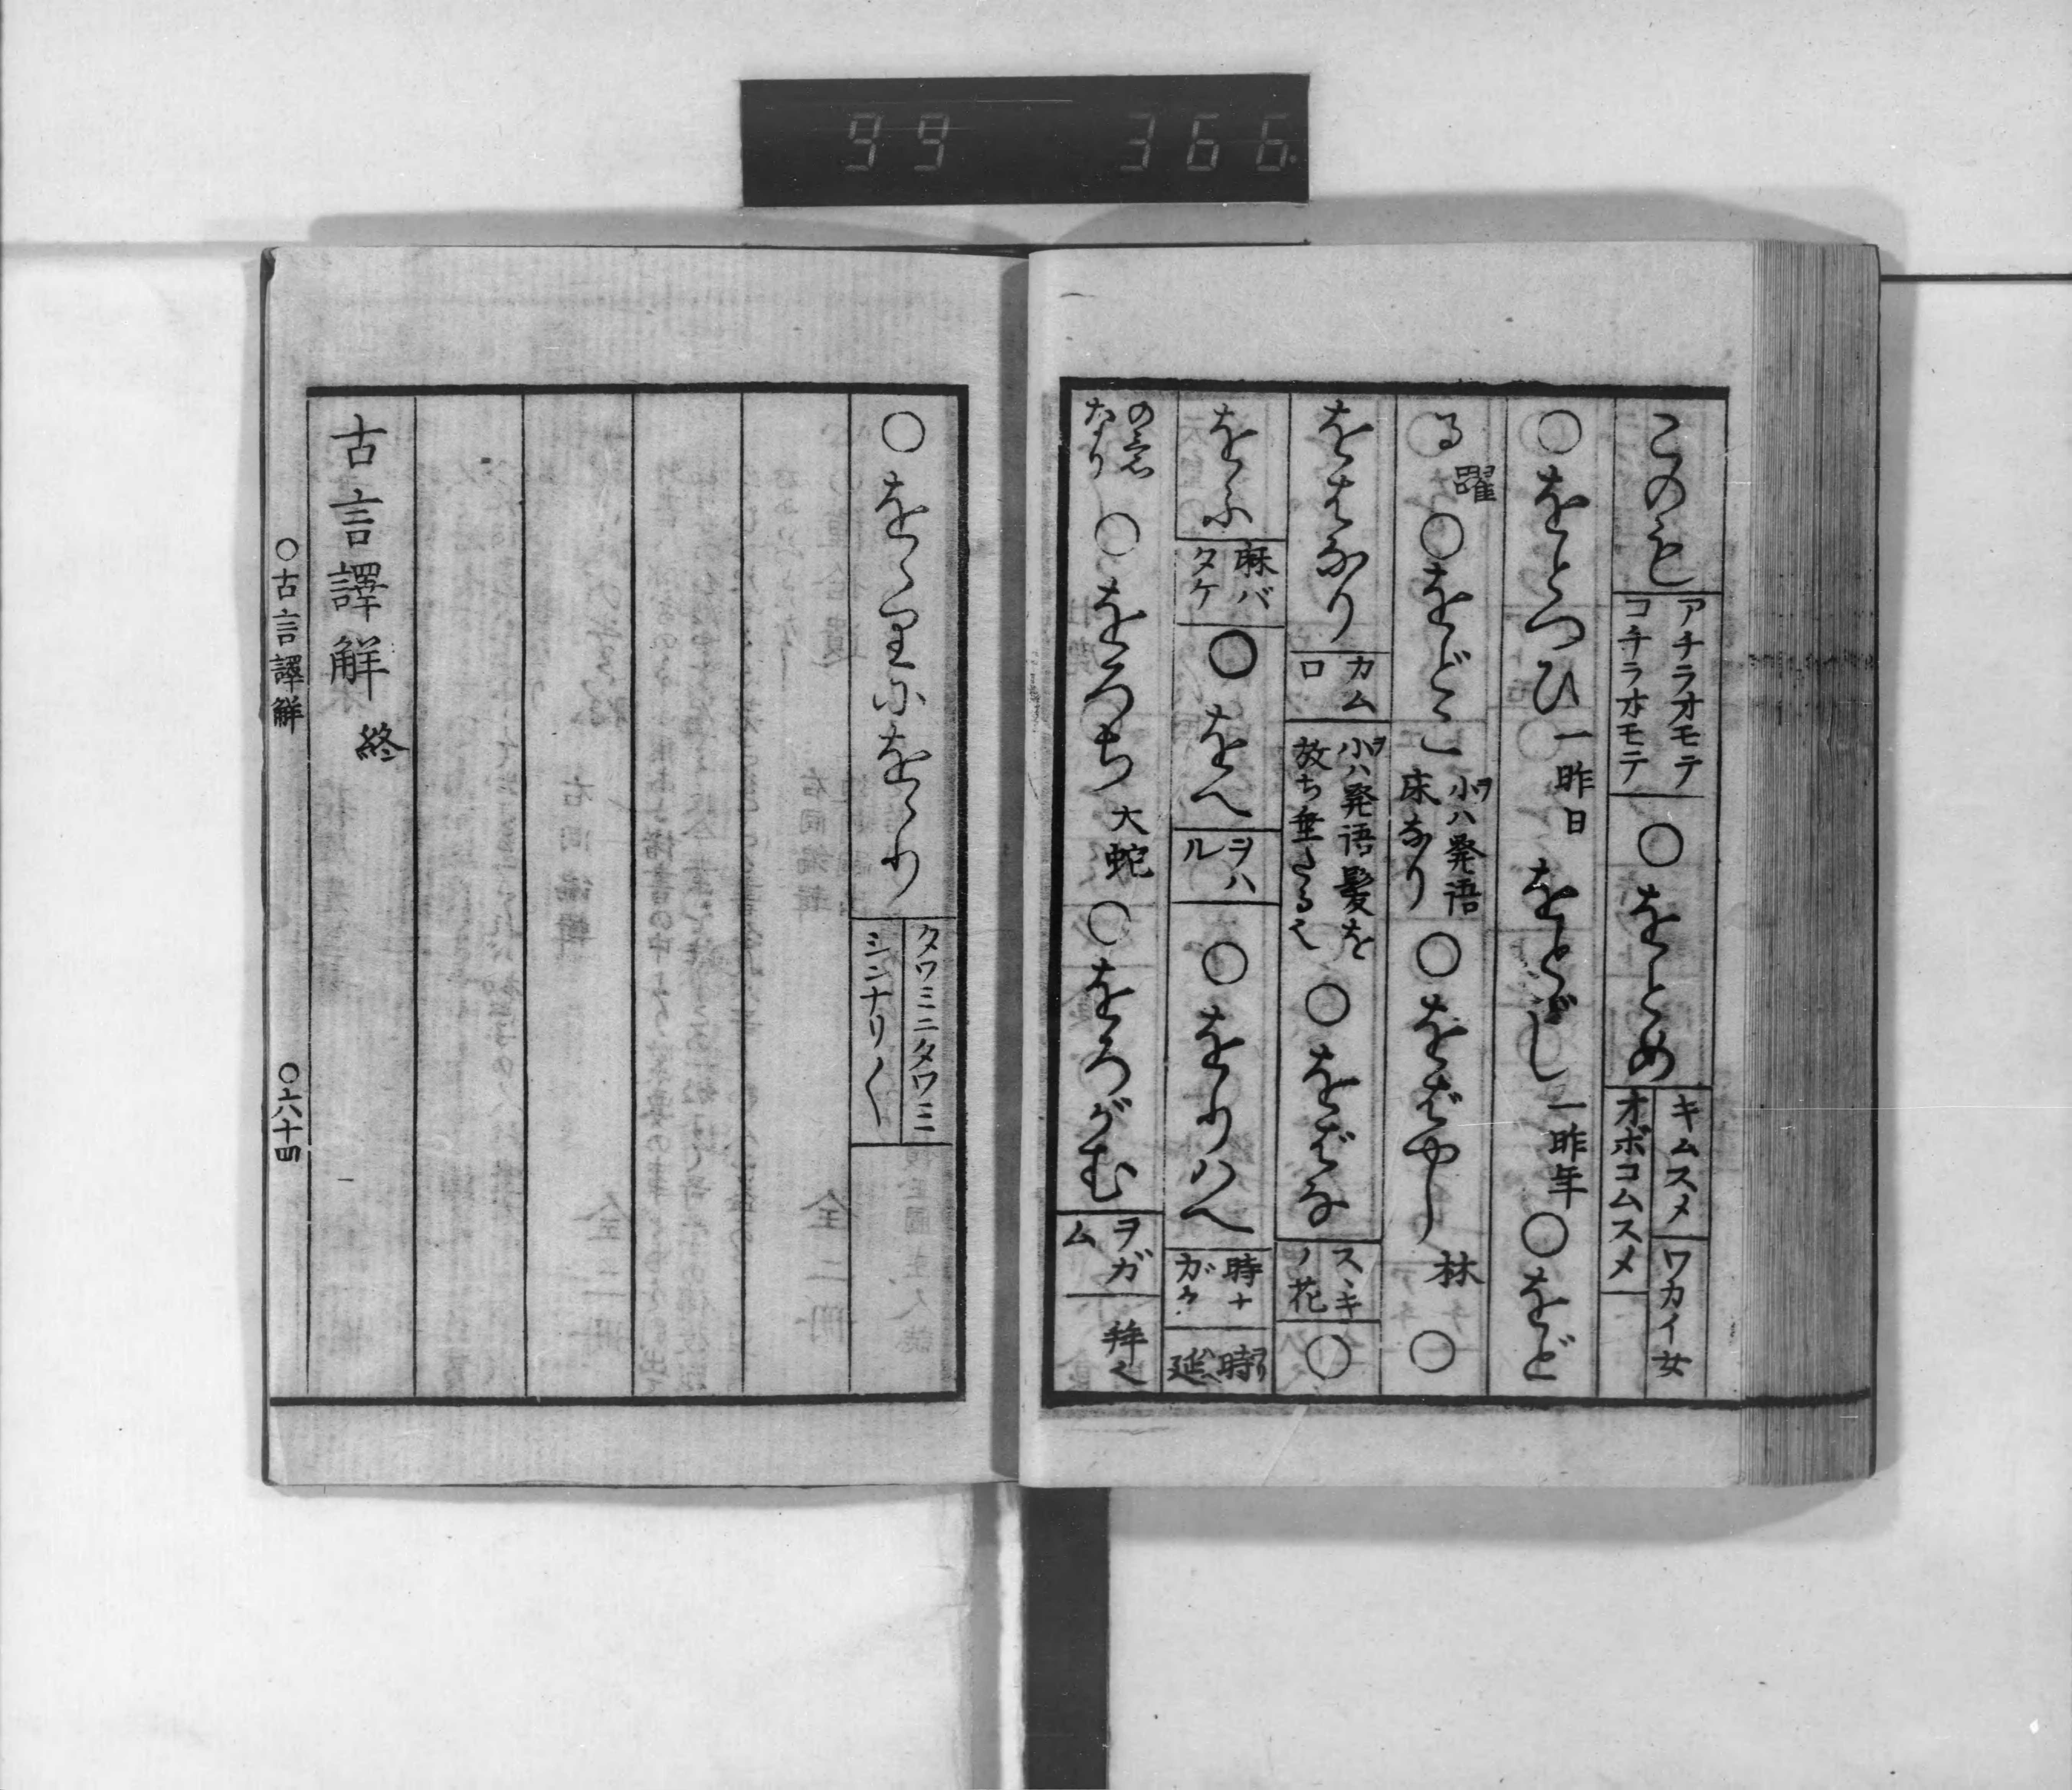 99 366
このも アチラオモテ コチラオモテ ○をとめ キムスメ ワカイ女 オボコムスメ
○をとつひ 一昨日 をとゞし 一昨年 ○をど
る 躍 ○をどこ 小ハ発語 床なり ○をばやし 林 ○
をはなり カムロ 小ハ発語髪を 放ち垂たる也 ○をばな スヽキノ花 ○
をふ 麻バタケ ○をへ ヲハル ○をりハへ 時ナガク 時延
の意なり ○をろち 大蛇 ○をろがむ ヲガム 拝也
○をゝりにをゝり タワミニタワミ シンナリ〳〵
古言譯解 終
○古言譯解 ○六十四